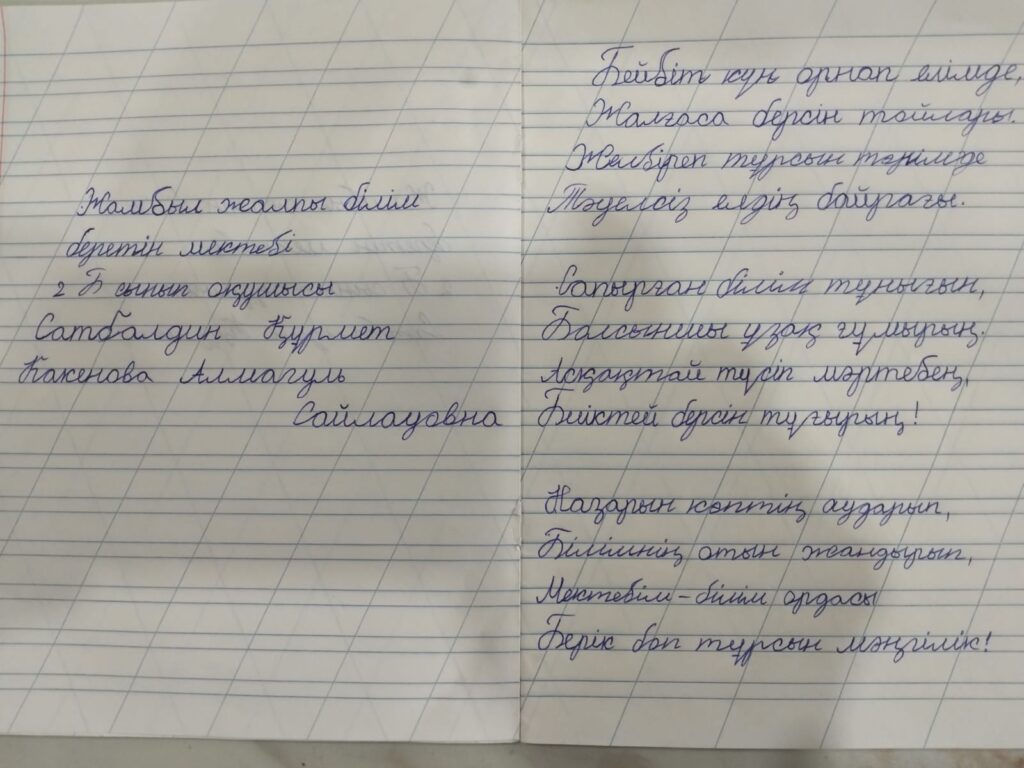 Жамбыл жалпы білім
беретін мектебі
2 Б сынып оқушысы
Сатбалдин Құрмет
Какенова Алмагуль
Сайлауовна
Бейбіт күн орнап елімде,
Жалғаса берсін тойлары.
Желбіреп тұрсын төрімде
Тәуелсіз елдің байрағы.
Сапырған білім тұнығын,
Болсыншы ұзақ ғұмырың.
Асқақтай түсіп мәртебең,
Биіктей берсін тұғырың!
Назарын көптің аударып,
Білімнің отын жандырып,
Мектебім-білім ордасы
Берік боп тұрсын мәңгілік!